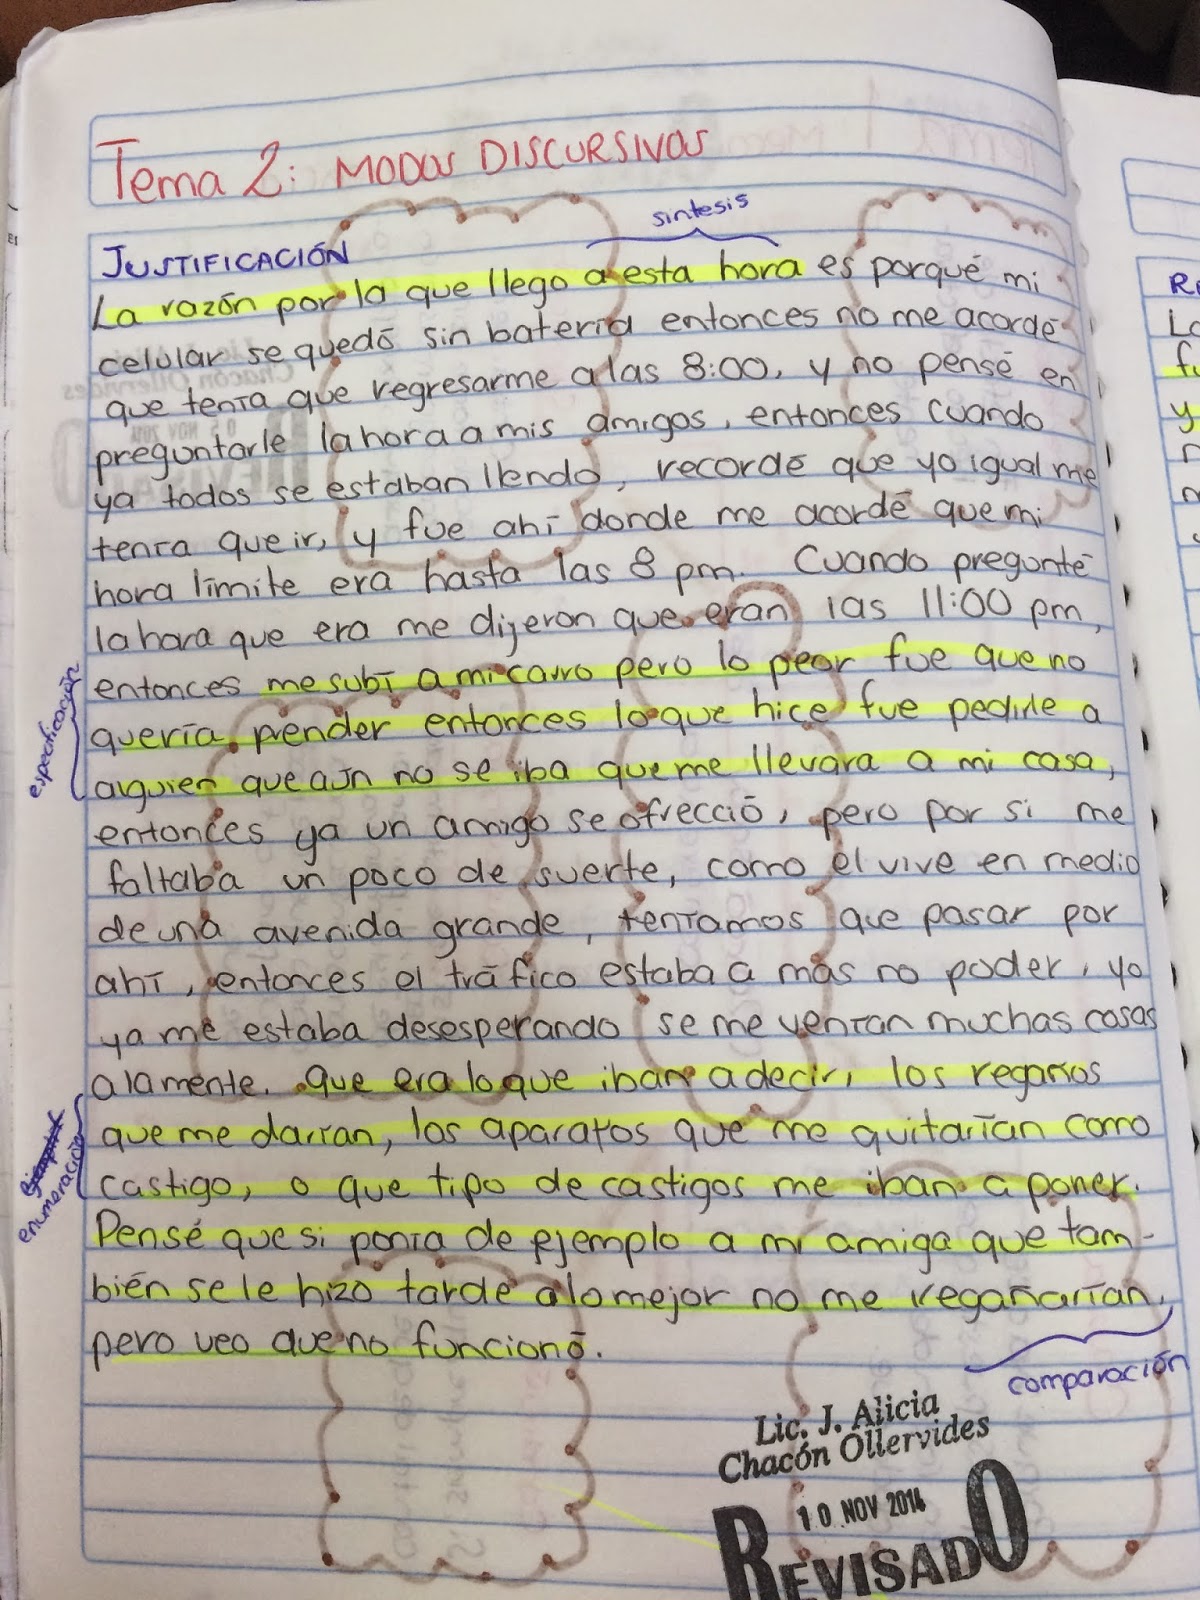 Tema 2: MODOS DISCURSIVOS
síntesis
JUSTIFICACIÓN
La razón por la que llego a esta hora es porqué mi
celular se quedó sin batería entonces no me acordé
que tenía que regresarme a las 8:00, y no pensé en
preguntarle la hora a mis amigos, entonces cuando
ya todos se estaban llendo, recordé que yo igual me
tenía que ir, y fue ahí donde me acordé que mi
hora límite era hasta las 8 pm. Cuando pregunté
la hora que era me dijeron que eran las 11:00 pm,
entonces me subí a mi carro pero lo peor fue que no
quería prender entonces lo que hice fue pedirle a
alguien que aún no se iba que me llevara a mi casa,
especificación
entonces ya un amigo se ofreció, pero por si me
faltaba un poco de suerte, como el vive en medio
de una avenida grande, teníamos que pasar por
ahí, entonces el tráfico estaba a más no poder, yo
ya me estaba desesperando se me venían muchas cosas
a la mente. que era lo que iban a decir, los regaños
que me darían, los aparatos que me quitarían como
castigo, o que tipo de castigos me iban a poner.
enumeración
Pensé que si ponía de ejemplo a mi amiga que tam-
bién se le hizo tarde a lo mejor no me regañarían,
pero veo que no funcionó.
comparación
Lic. J. Alicia
Chacón Ollervides
10 NOV 2014
REVISADO